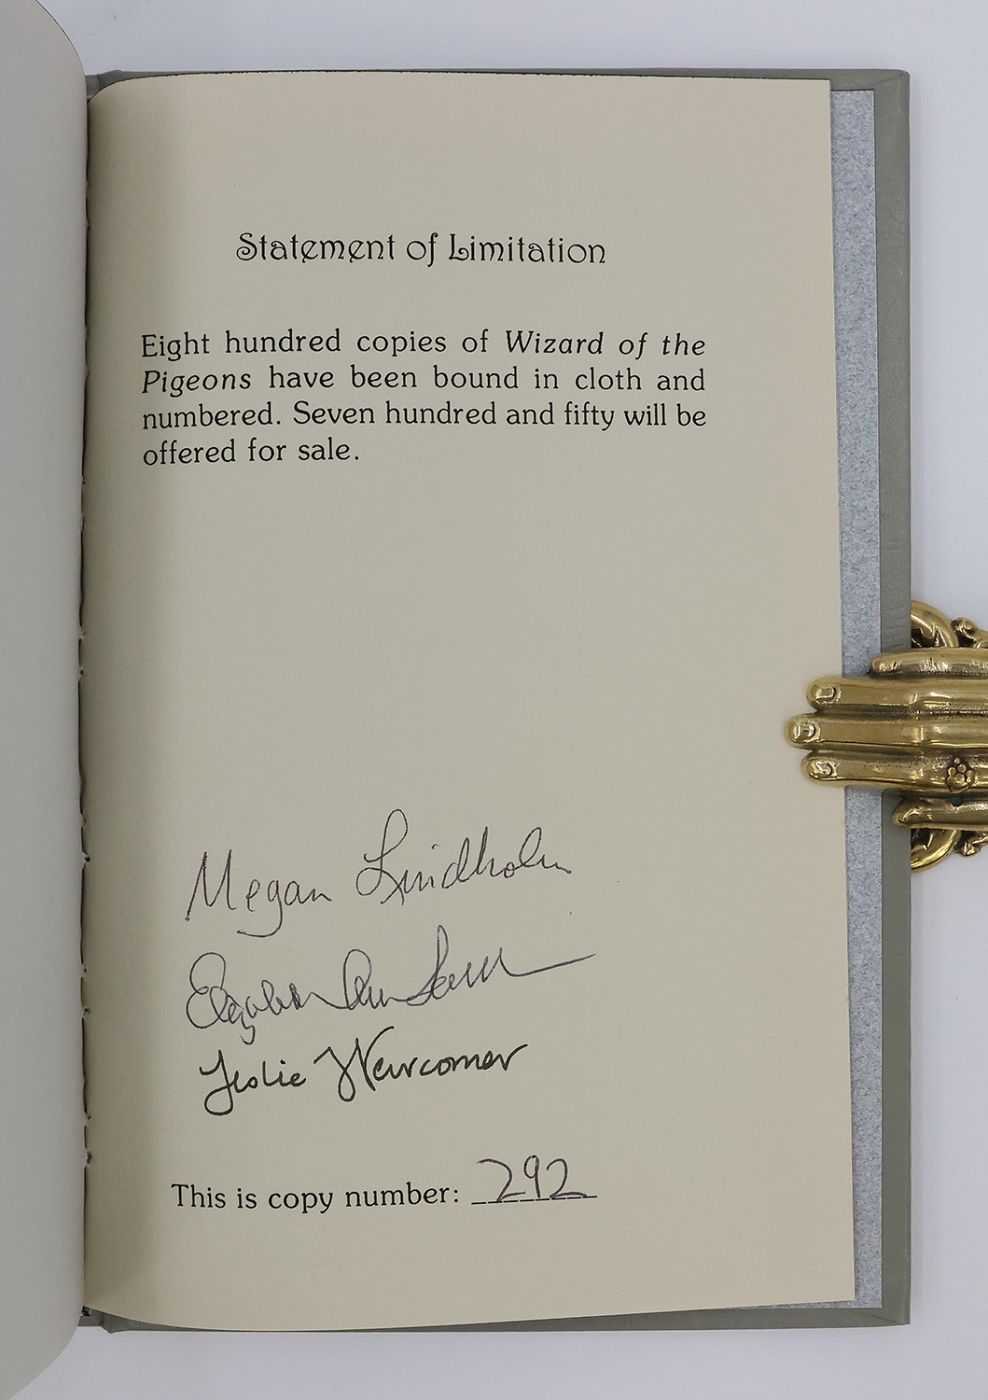 Statement of Limitation
Eight hundred copies of Wizard of the
Pigeons have been bound in cloth and
numbered. Seven hundred and fifty will be
offered for sale.
Megan Lindholm
Elizabeth Ann
Leslie Newcomer
This is copy number: 292